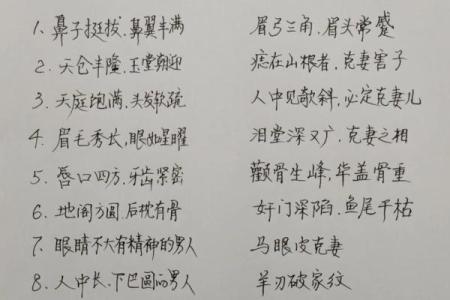 1、鼻子挺拔、鼻翼丰满
2、天仓丰隆、玉堂朝迎
3、天庭饱满、头发软疏
4、眉毛秀长、眼如星曜
5、唇口四方、牙齿紧密
6、地阁方圆、后枕有骨
7、眼睛不大有精神的男人
8、人中长、下巴圆的男人
眉弓三角、眉头常蹙
痣在山根者、克妻害子
人中见欹斜、必定克妻儿
泪堂深又广、克妻之相
颧骨生峰、华盖骨重
奸门深陷、鱼尾干枯
马眼皮克妻
羊刃破家纹